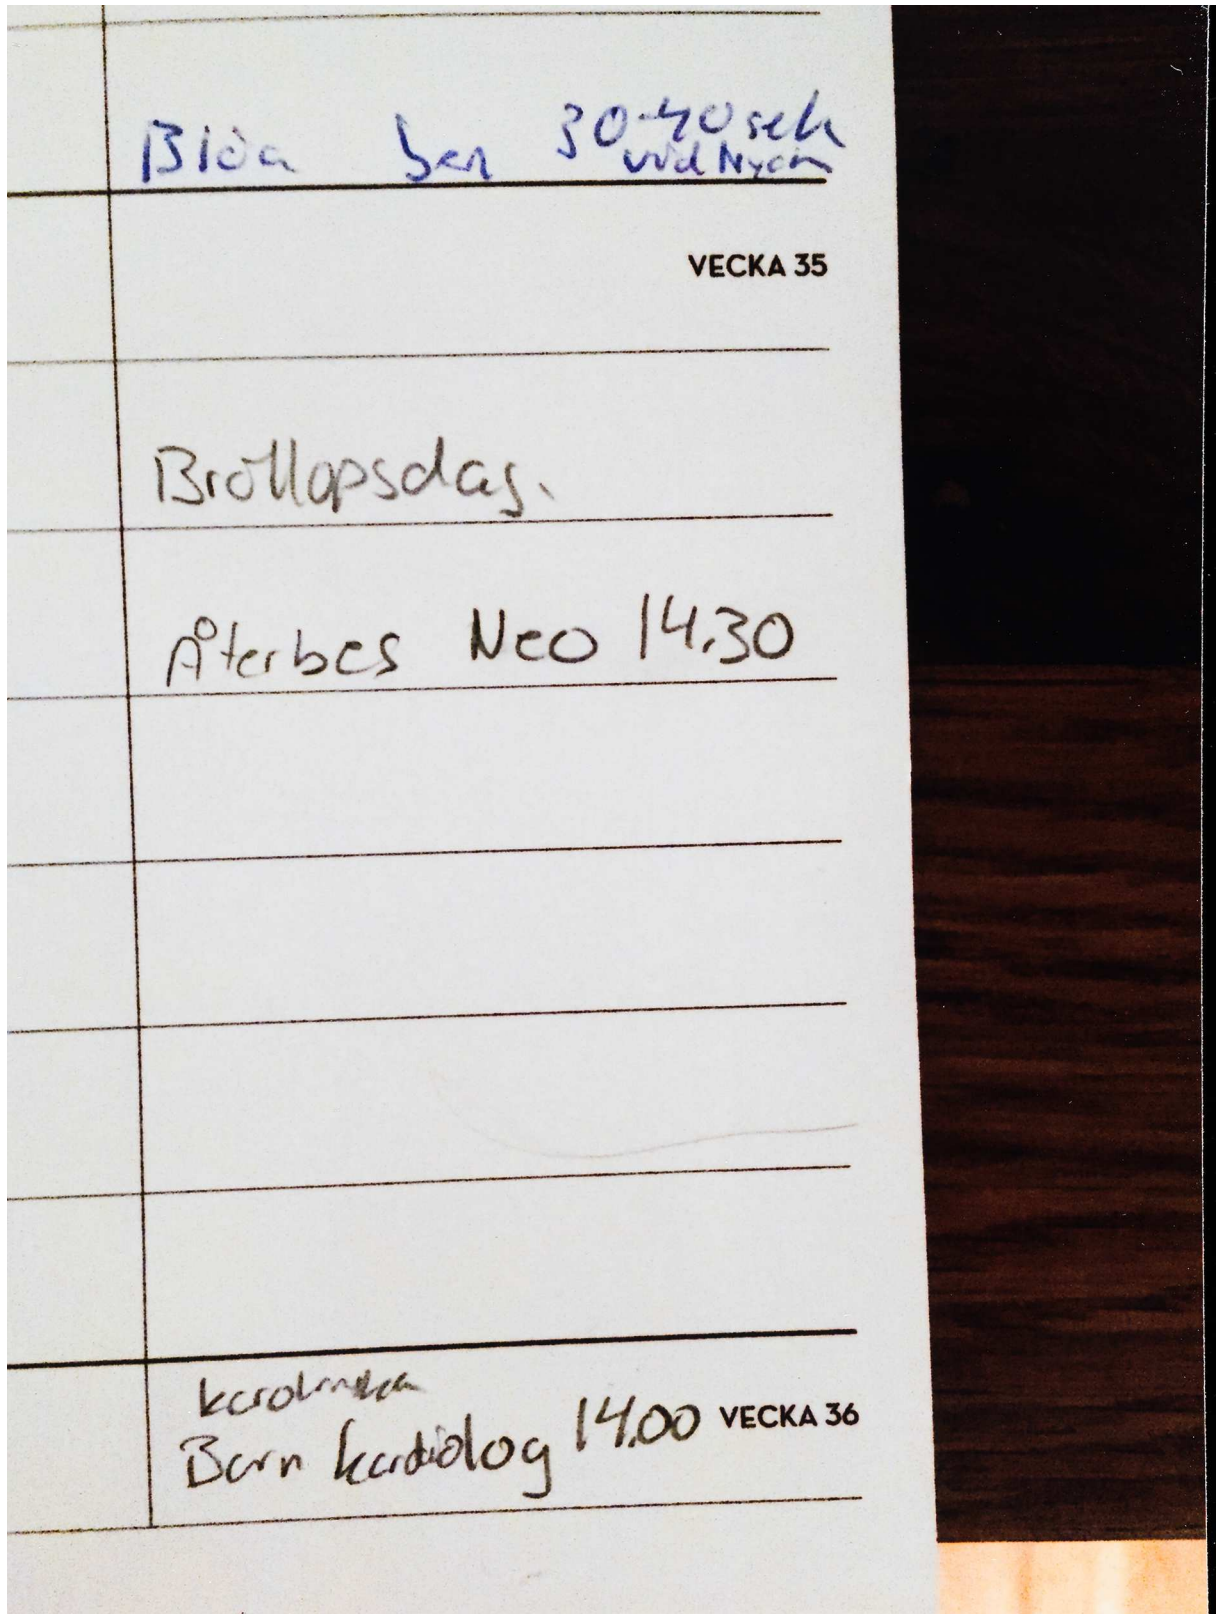 Blåa ben 30-40 sek
vid
VECKA 35
Bröllopsdag.
Återbes Neo 14.30
karolinska
Barn kardiolog 14.00 VECKA 36